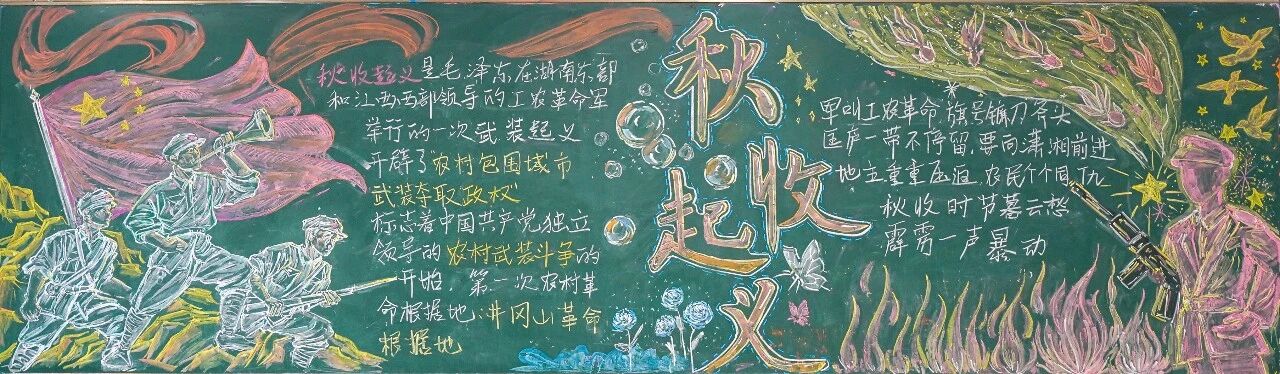 秋收起义是毛泽东在湖南东部
和江西西部领导的工农革命军
举行的一次武装起义
开辟了农村包围城市
武装夺取政权
标志着中国共产党独立
领导的农村武装斗争的
开始，第一次农村革
命根据地井冈山革命
根据地
秋收起义
早叫工农革命，旗号镰刀斧头
匡庐一带不停留，要向潇湘前进
地主重重压迫，农民个个同仇
秋收时节暮云愁
霹雳一声暴动